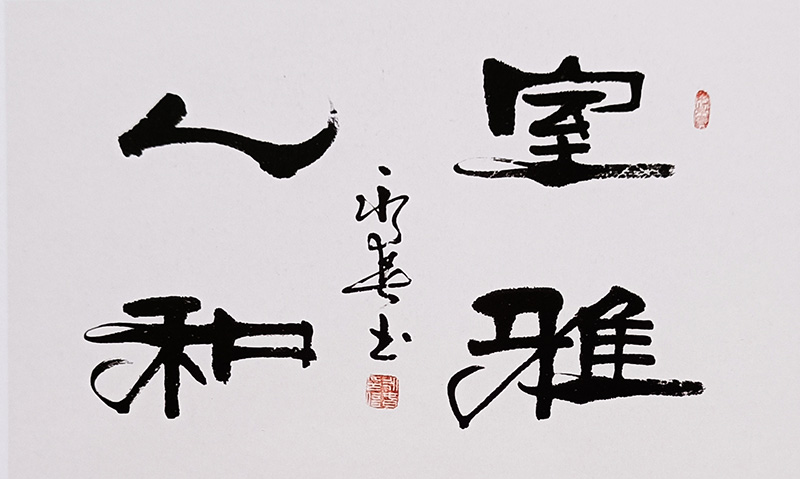 室雅
人和
永 书